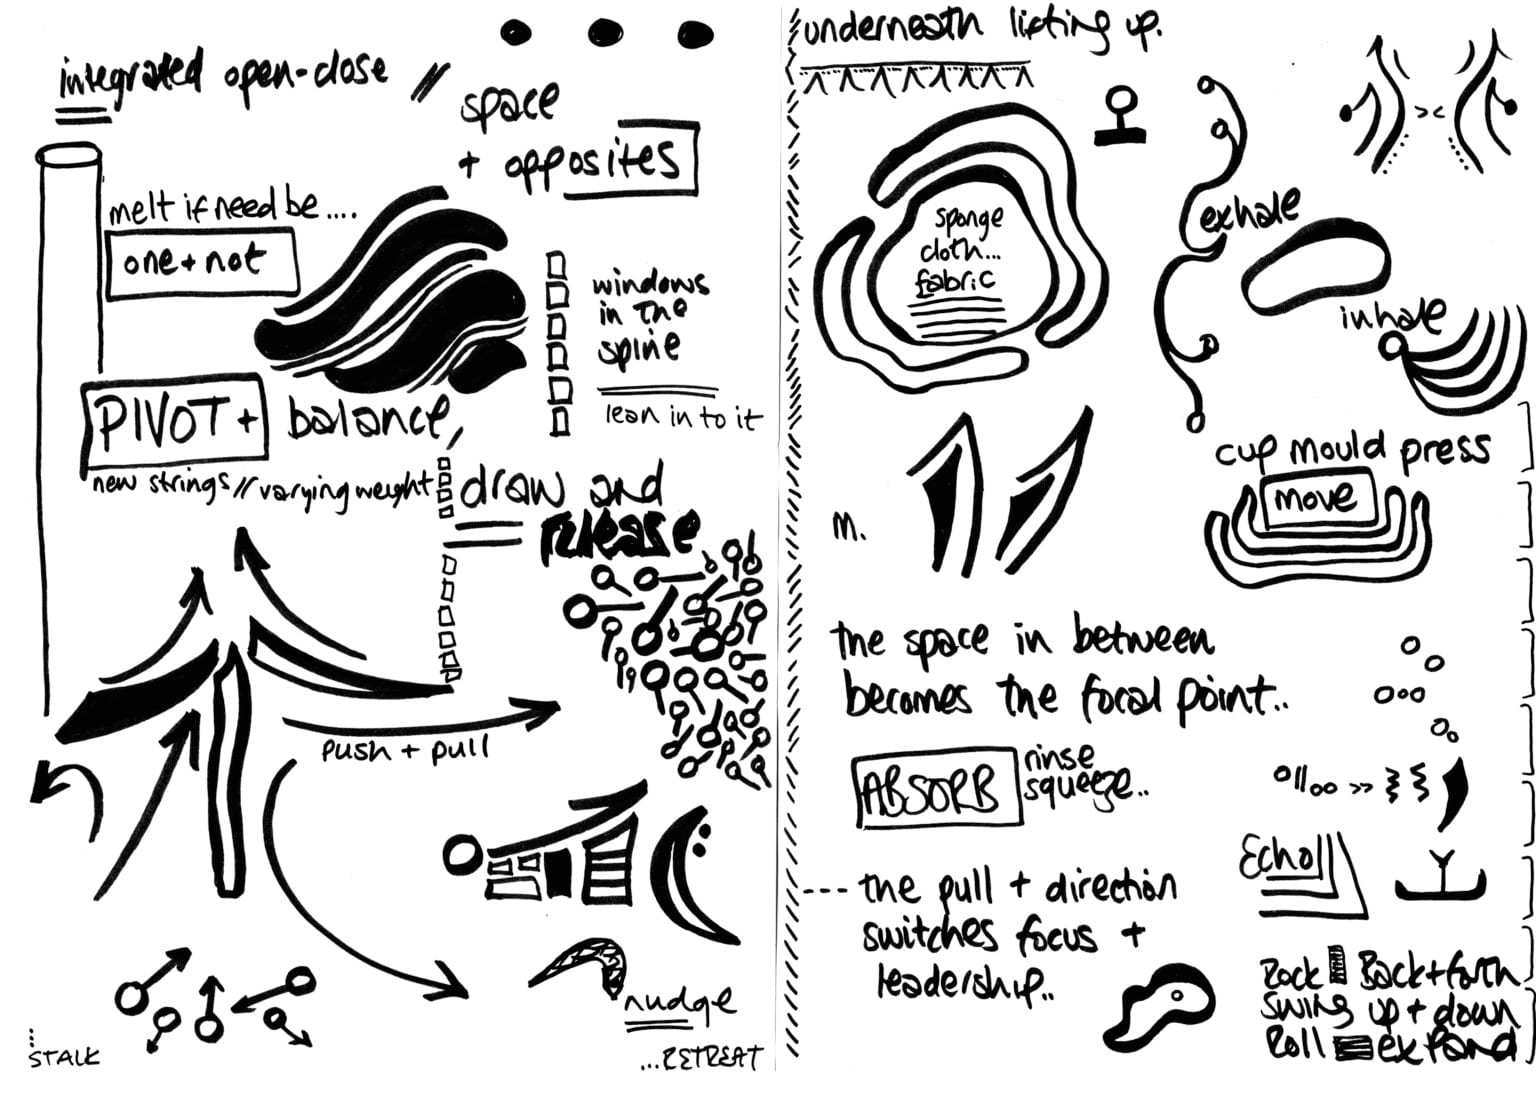 integrated open-close //
space
+ opposites
melt if need be....
one + not
windows
in the
spine
lean in to it
PIVOT + balance,
new strings // varying weight
draw and
release
push + pull
nudge
STALK
...RETREAT
underneath lifting up.
sponge
cloth...
fabric
exhale
inhale
cup mould press
move
M.
the space in between
becomes the focal point..
ABSORB rinse
squeeze..
Echo
--- the pull + direction
switches focus +
leadership..
Rock Back + forth
Swing up + down
Roll expand